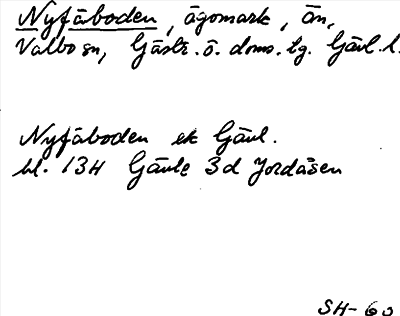 Nyfäboden, ägomark, ön,
Valbo sn, Gästr. ö. doms. tg. Gävl. l.
Nyfäboden ek Gävl.
bl. 13H Gävle 3d Jordåsen
SH-60